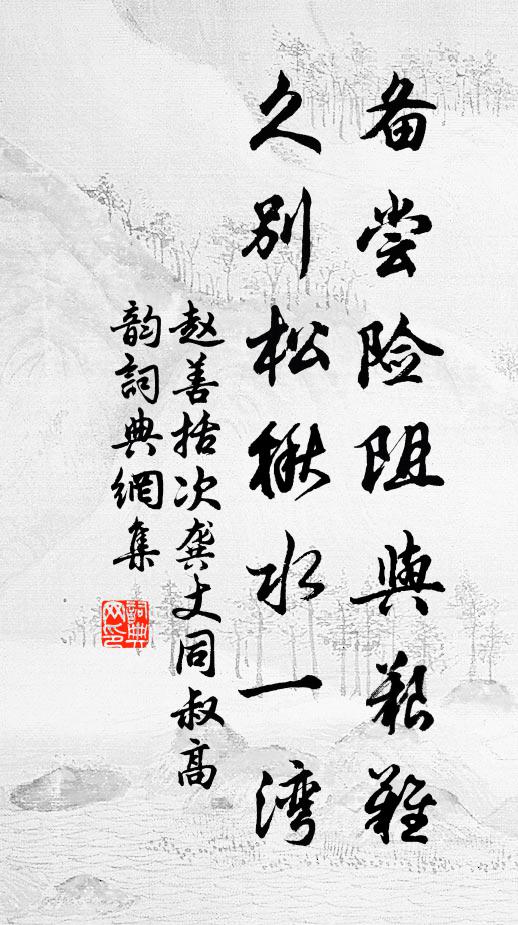 备尝险阻与艰难
久别松楸水一湾
赵善括次龚丈同叔高
韵词典網集
詞典网印